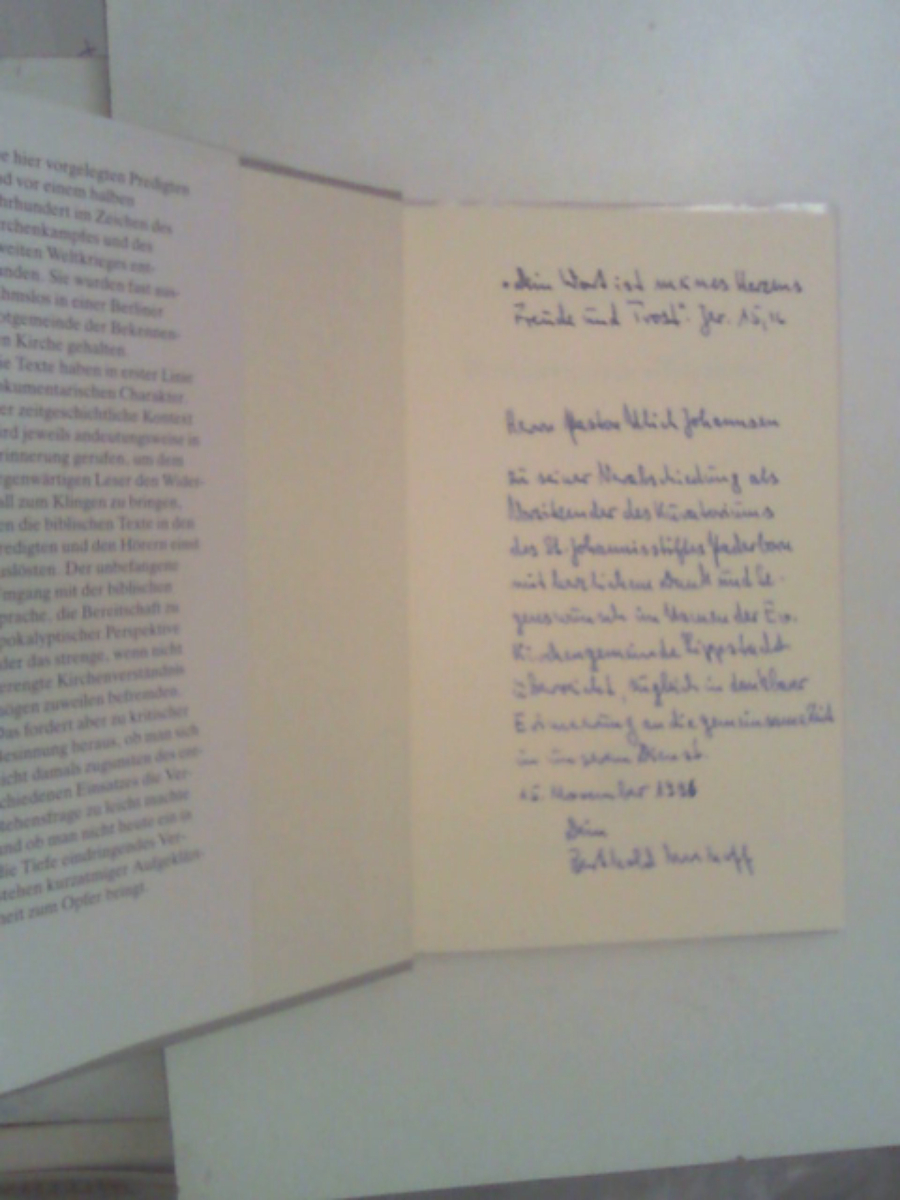 e hier vorgelegten Predigten
nd vor einem halben
hrhundert im Zeichen des
rchenkampfes und des
weiten Weltkrieges ent-
anden. Sie wurden fast aus-
hmslos in einer Berliner
otgemeinde der Bekennen-
n Kirche gehalten.
ie Texte haben in erster Linie
okumentarischen Charakter.
er zeitgeschichtliche Kontext
ird jeweils andeutungsweise in
rinnerung gerufen, um dem
egenwärtigen Leser den Wider-
all zum Klingen zu bringen,
en die biblischen Texte in den
redigten und den Hörern einst
uslösten. Der unbefangene
mgang mit der biblischen
prache, die Bereitschaft zu
pokalyptischer Perspektive
der das strenge, wenn nicht
erengte Kirchenverständnis
mögen zuweilen befremden.
Das fordert aber zu kritischer
Besinnung heraus, ob man sich
nicht damals zugunsten des ent-
schiedenen Einsatzes die Ver-
stehensfrage zu leicht machte
und ob man nicht heute ein in
die Tiefe eindringendes Ver-
stehen kurzatmiger Aufgeklärt-
heit zum Opfer bringt.
"Dein Wort ist meines Herzens
Freude und Trost". Jer. 15,16
Herrn Pastor Ulrich Johannsen
zu seiner Verabschiedung als
Vorsitzender des Kuratoriums
des St. Johannisstiftes Paderborn
mit herzlichem Dank und Se-
genswunsch im Namen der Ev.
Kirchengemeinde Lippstadt
überreicht, zugleich in dankbarer
Erinnerung an die gemeinsame Zeit
in unserem Dienst.
November 1996
Dein
Berthold